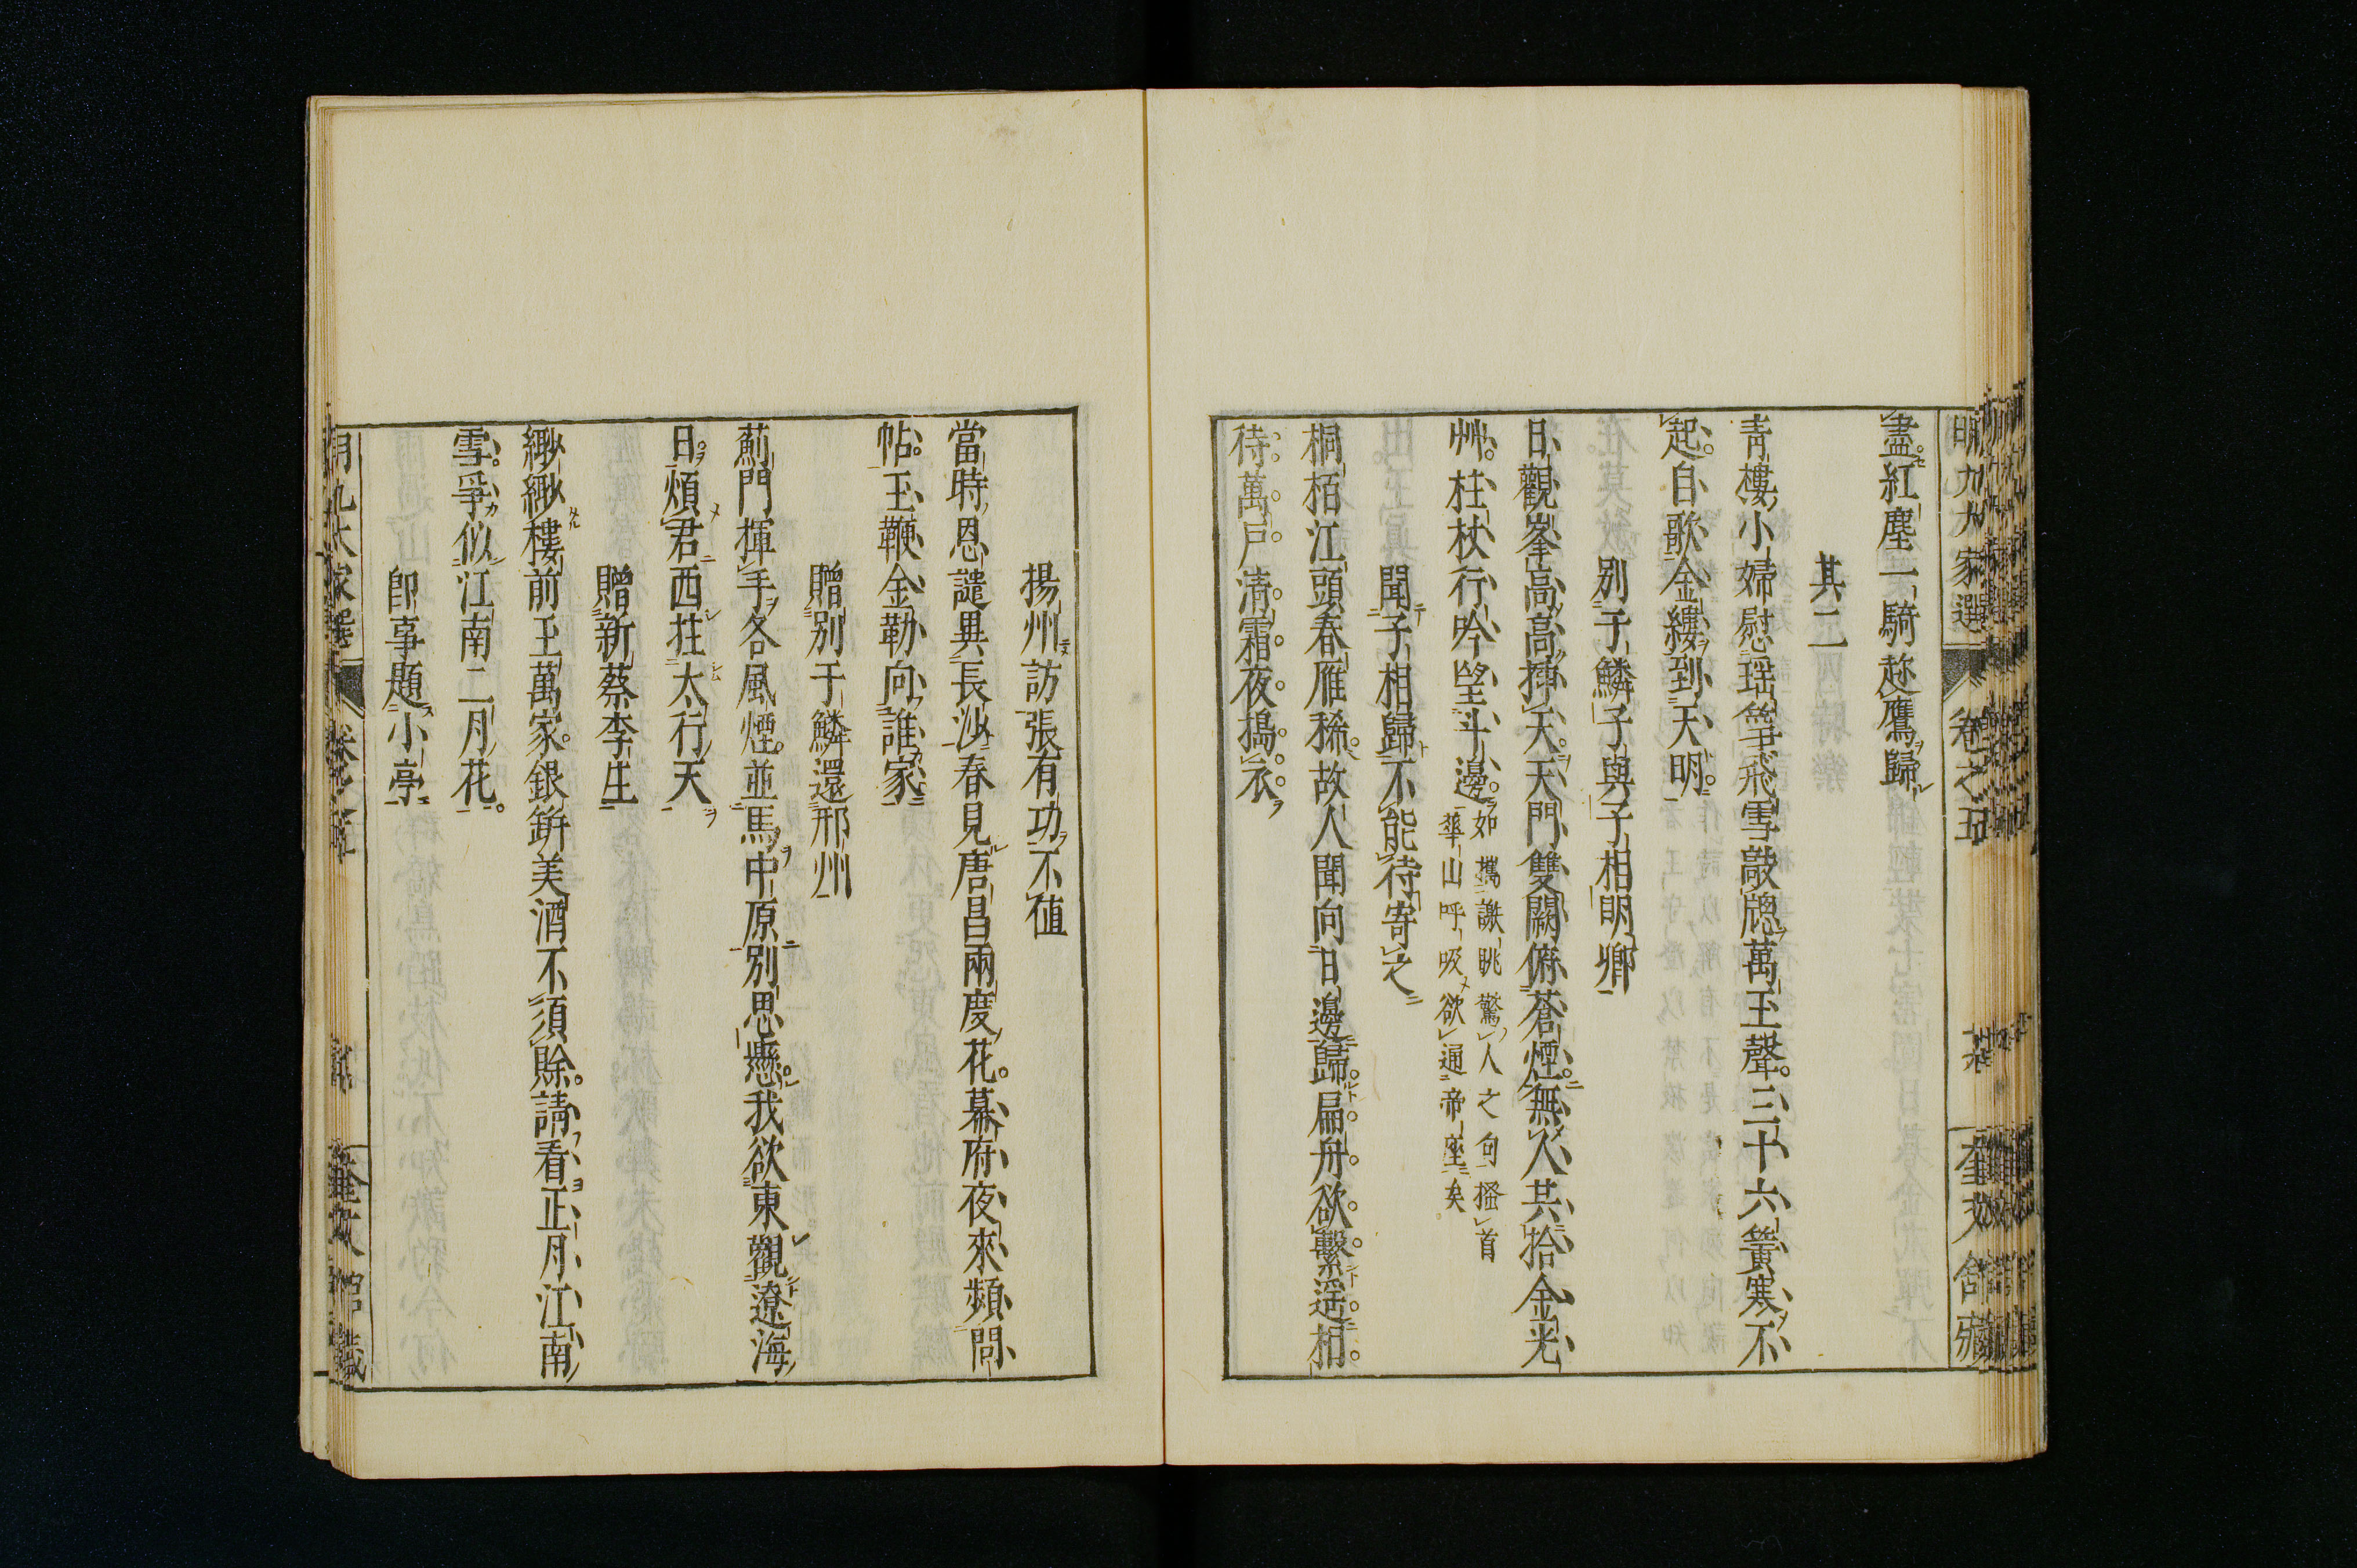 明九大家選 卷之五 奎文舘藏
盡紅塵一騎趂鷹歸
其二
青樓小婦慰瑶筝飛雪敲牕萬玉聲三十六簧寒不
起自歌金縷到天明
別子鱗子與子相明卿
日觀峯高高揷天天門雙闕俯蒼煙無人共拾金光
艸柱杖行吟望斗邊
如攜謝眺驚人之句搔首
華山呼吸欲通帝座矣
聞子相歸不能待寄之
桐栢江頭春雁稀故人聞向日邊歸扁舟欲繫遥相
待萬戶清霜夜搗衣
揚州訪張有功不値
當時恩譴異長沙春見唐昌兩度花幕府夜來頻問
帖玉鞭金勒向誰家
贈別于鱗還邢州
薊門揮手各風煙並馬中原別思懸我欲東觀遼海
日煩君西拄太行天
贈新蔡李生
緲緲樓前玉萬家銀缾美酒不須賖請看正月江南
雪爭似江南二月花
卽事題小亭